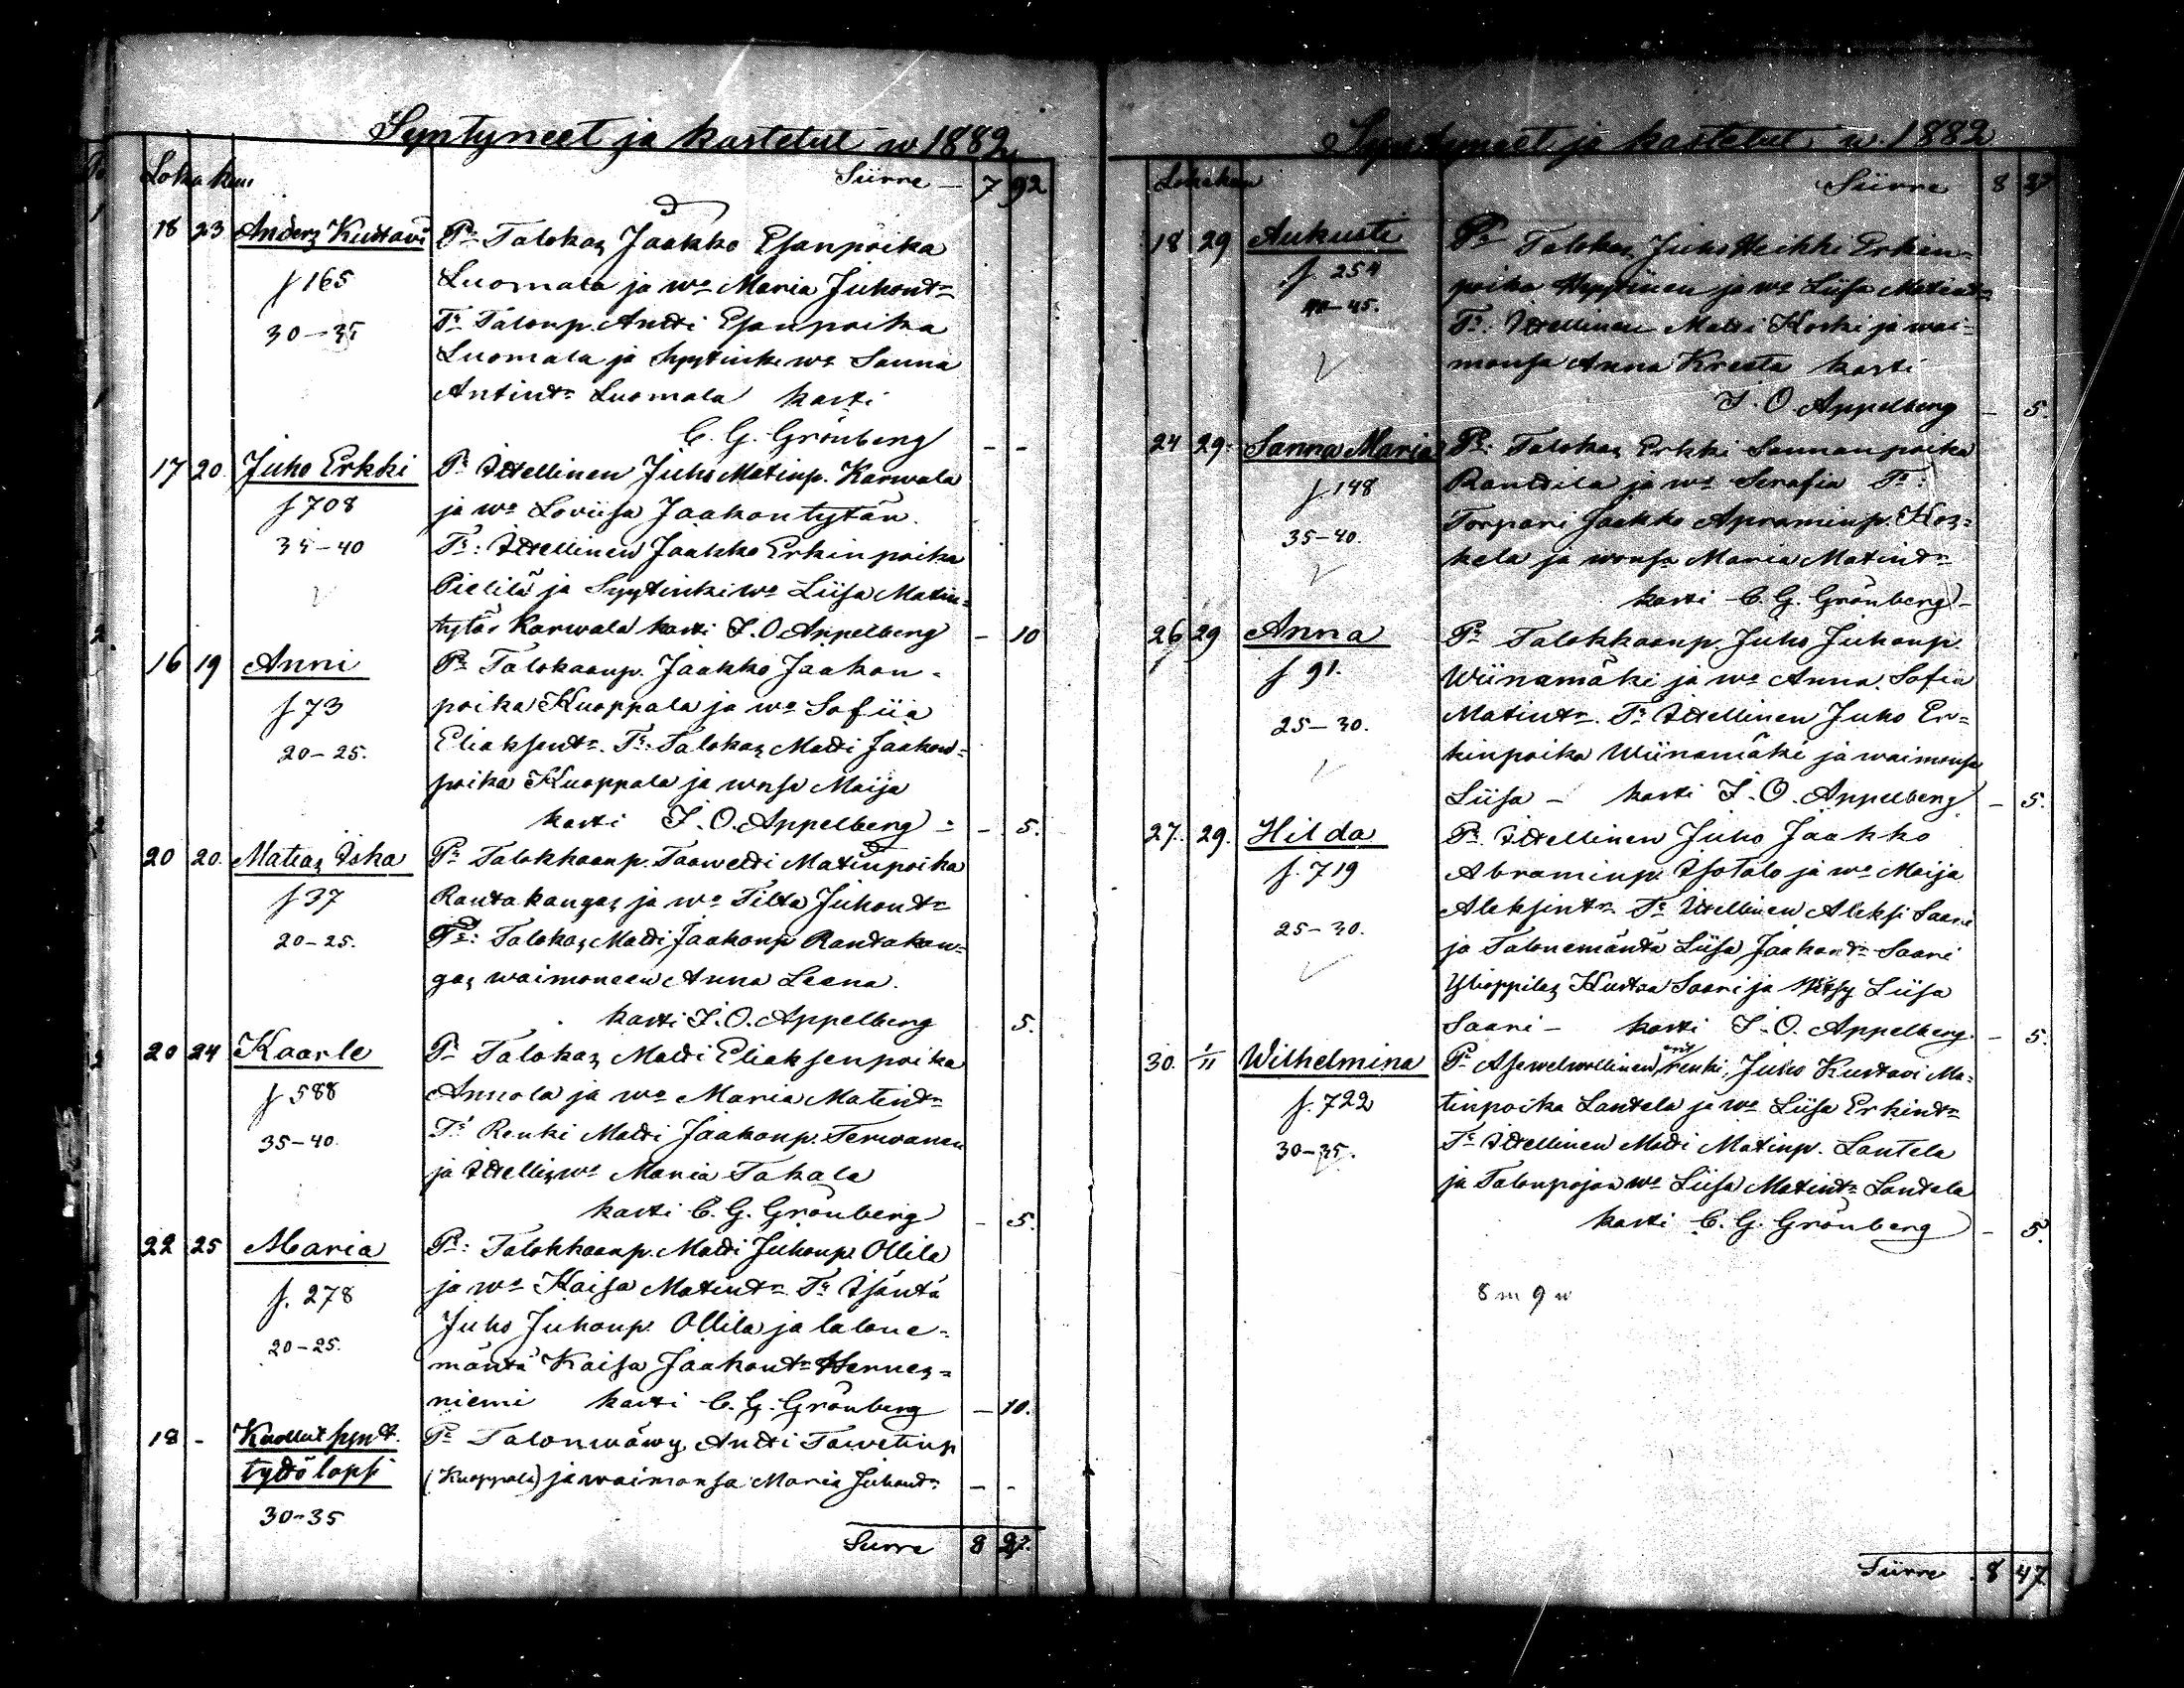 Syntyneet ja kastetut w 1882
Loka kuu Siirre — 7 92
18 23 Anders Kustavi Pr Talokas Jaakko Esanpoika
f 165 Luomala ja wo Maria Juhontr
30–35 Tr Talonp. Antti Esanpoika
Luomala ja Syytinki wo Sanna
Antintr Luomala kasti
C. G. Grönberg – –
17 20 Juho Erkki Pr Itellinen Juho Matinp. Karwala
f 708 ja wo Loviisa Jaakontytär.
35–40 Tr: Itellinen Jaakko Erkinpoika
Pielilä ja Syytinki wo Liisa Matin-
tytär Karwala kasti J. O. Appelberg – 10
16 19 Anni Pr Talokaanp. Jaakko Jaakon-
f 73 poika Kuoppala ja wo Sofiia
20–25. Eliaksentr. Tr: Talokas Matti Jaakon-
poika Kuoppala ja wnsa Maija
kasti J. O. Appelberg – – 5.
20 20. Matias Iska Pr Talokkaanp. Taawetti Matinpoika
f 37 Rantakangas ja wo Tilta Juhontr
20–25. Tr: Talokas Matti Jaakonp Rantakan-
gas waimoneen Anna Leena.
kasti J. O. Appelberg 5.
20 24 Kaarle Pr Talokas Matti Eliaksenpoika
f 588 Annola ja wo Maria Matintr
35–40. Tr Renki Matti Jaakonp. Terwanen
ja Itellis wo Maria Takala
kasti C. G. Grönberg – 5.
22 25 Maria Pr: Talokkaanp. Matti Juhonp. Ollila
f. 278 ja wo Kaisa Matintr Tr Isäntä
20–25. Juho Juhonp. Ollila ja talone-
mäntä Kaisa Jaakontr Hernes-
niemi kasti C. G. Grönberg – 10.
18 – Kuollut synt. Pr Talonwäwy Antti Tawetinp
tyttö lapsi (Kuoppala) ja waimonsa Maria Juhontr – –
30–35
Siirre 8 27.
Syntyneet ja kastetut w. 1882
Lokakuu Siirre 8 27
18 29 Aukusti Pr Talokas Juho Heikki Erkin-
f. 254 poika Hyytinen ja wo Liisa Matintr
40–45. Tr: Itellinen Matti Koski ja wai-
monsa Anna Kreeta kasti
J. O. Appelberg – 5.
24 29. Sanna Maria Pr: Talokas Erkki Sannanpoika
f 148 Rantila ja wo Serafia Tr:
35–40. Torpari Jaakko Apraminp. Kos-
kela ja wonsa Maria Matintr
kasti C. G. Grönberg –
26 29 Anna Pr Talokkaanp. Juho Juhonp.
f 91. Wiinamäki ja wo Anna Sofia
25–30. Matintr. Tr Itellinen Juho Er-
kinpoika Wiinamäki ja waimonsa
Liisa – kasti J. O. Appelberg – 5.
27. 29. Hilda Pr. Itellinen Juho Jaakko
f. 719 Abraminp. Isotalo ja wo Maija
25–30. Aleksintr Tr Itellinen Aleksi Saari
ja Talonemäntä Liisa Jaakontr Saari
Ylioppilas Kustaa Saari ja Liisa
Saari – kasti J. O. Appelberg. – 5.
30. 1/11 Wilhelmina Pr Asewelwollinen, renki, Juho Kustavi Ma-
f. 722 tinpoika Lantela ja wo Liisa Erkintr
30–35. Tr Itellinen Matti Matinp. Lantela
ja Talonpojan wo Liisa Matintr Lantela
kasti C. G. Grönberg – 5.
8 m 9 w
Siirre 8 47